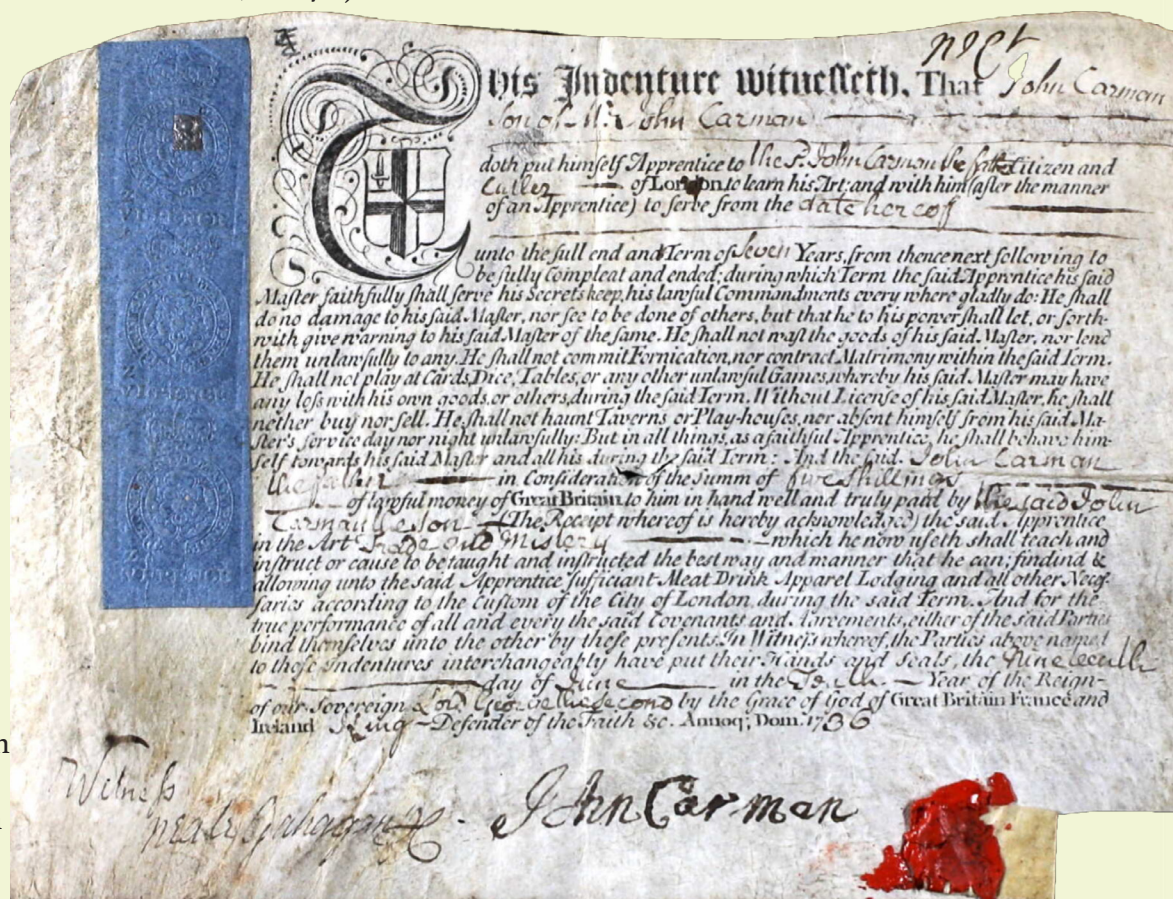 This Indenture Witnesseth, That John Carman
Son of Mr John Carman
doth put himself Apprentice to the sd. John Carman the father Citizen and
Cutler of London, to learn his Art: and with him (after the manner
of an Apprentice) to serve from the date hereof
unto the full end and Term of Seven Years, from thence next following to
be fully Compleat and ended; during which Term the said Apprentice his said
Master faithfully shall serve his Secrets keep, his lawful Commandments every where gladly do: He shall
do no damage to his said Master, nor see to be done of others, but that he to his power shall let, or forth-
with give warning to his said Master of the same. He shall not wast the goods of his said Master, nor lend
them unlawfully to any. He shall not commit Fornication, nor contract Matrimony within the said Term.
He shall not play at Cards, Dice, Tables, or any other unlawful Games, whereby his said Master may have
any loss with his own goods, or others, during the said Term. Without License of his said Master, he shall
nether buy nor sell. He shall not haunt Taverns or Play-houses, nor absent himself from his said Ma-
ster's service day nor night unlawfully: But in all things, as a faithful Apprentice, he shall behave him-
self towards his said Master and all his during the said Term: And the said. John Carman
the father in Consideration of the Summ of five shillings
of lawful money of Great Britain to him in hand well and truly paid by the said John
Carman the son (The Receipt whereof is hereby acknowledged) the said Apprentice
in the Art Trade and Mistery which he now useth shall teach and
instruct or cause to be taught and instructed the best way and manner that he can; findind &
allowing unto the said Apprentice sufficiant Meat Drink Apparel Lodging and all other Neces-
saries according to the Custom of the City of London, during the said Term. And for the
true performance of all and every the said Covenants and Agreements, either of the said Parties
bind themselves unto the other by these presents. In Witness whereof, the Parties above named
to these Indentures interchangeably have put their Hands and Seals, the Nineteenth
day of June in the Tenth Year of the Reign
of our Sovereign Lord George the Second by the Grace of God of Great Britain France and
Ireland King Defender of the Faith &c. Annoq; Dom. 1736
Witness
John Carman